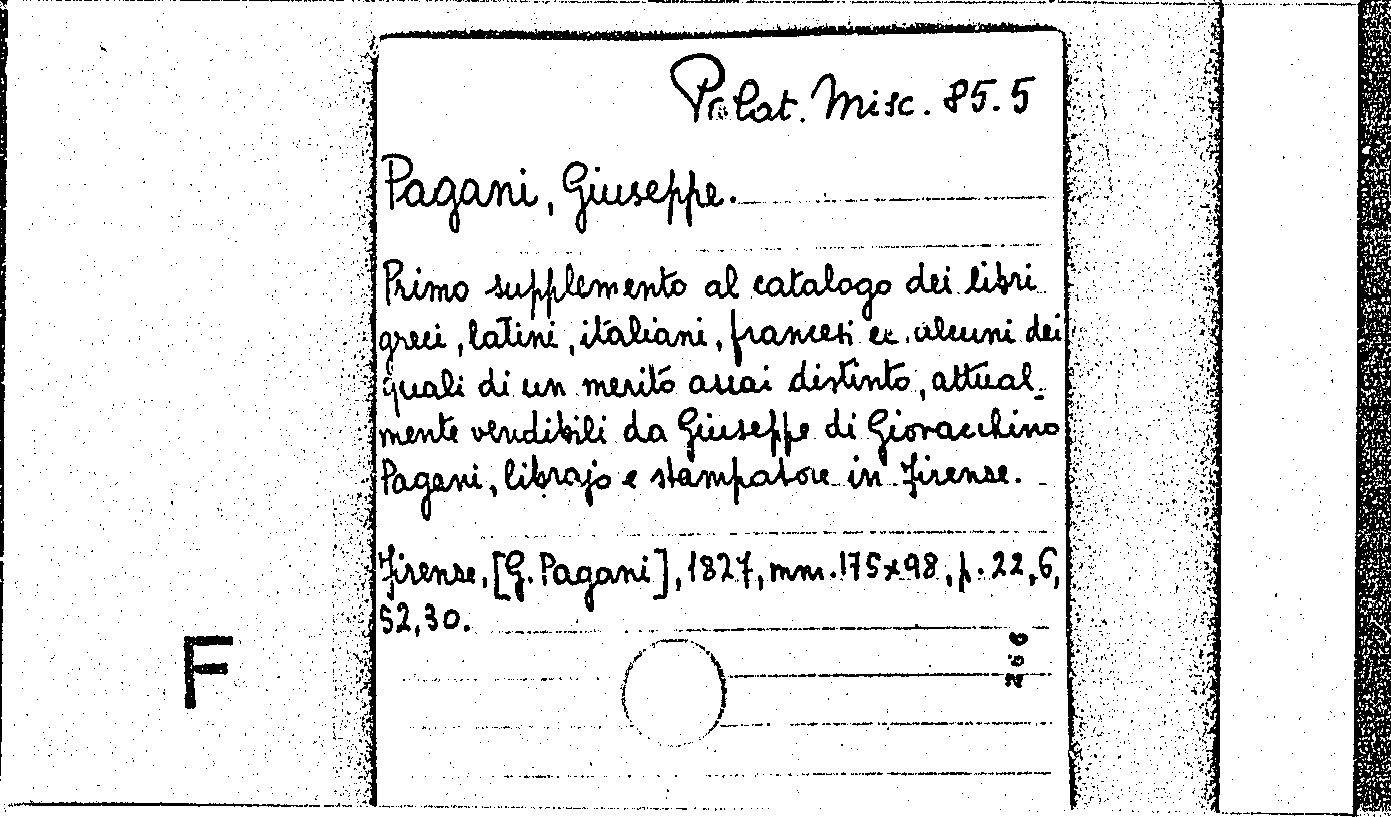 Palat. Misc. 85.5
Pagani, Giuseppe.
Primo supplemento al catalogo dei libri
greci, latini, italiani, francesi ec. alcuni dei
quali di un merito assai distinto, attual-
mente vendibili da Giuseppe di Gioracchino
Pagani, librajo e stampatore in Firenze.
Firenze, [G. Pagani], 1827, mm. 175x98, p. 22, 6,
52, 30.
F